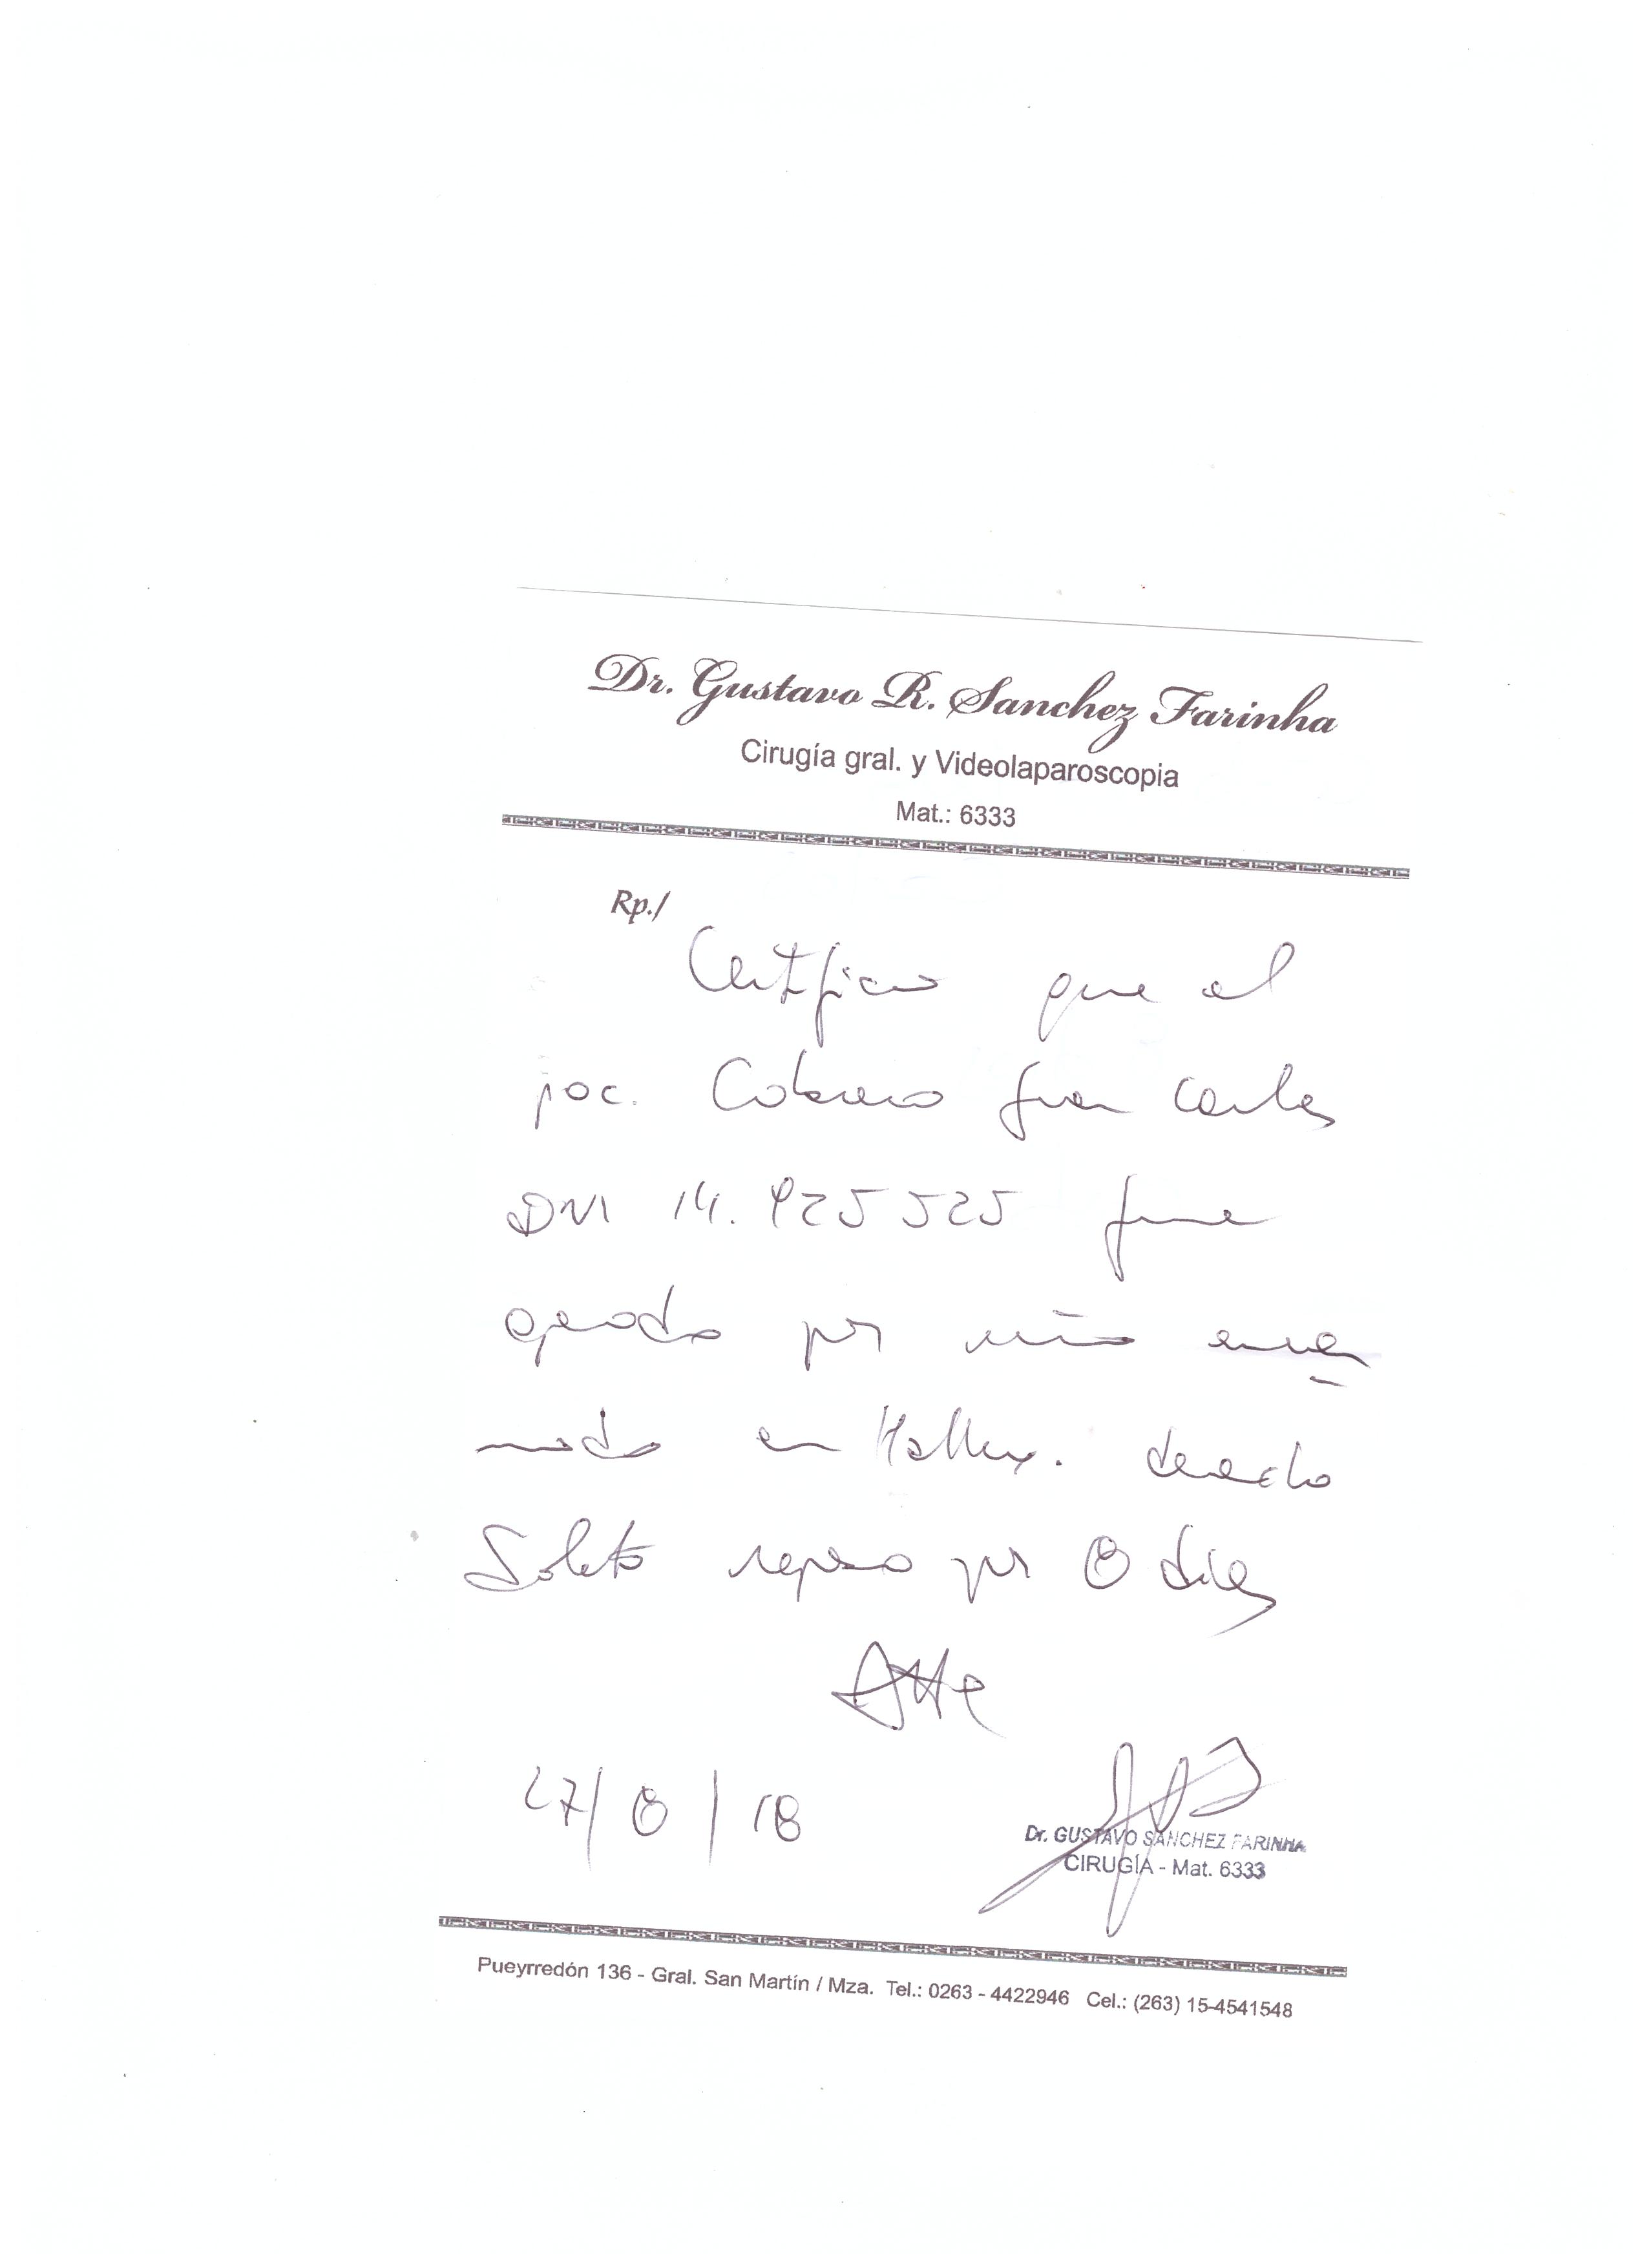 Dr. Gustavo R. Sanchez Farinha
Cirugía gral. y Videolaparoscopia
Mat.: 6333
Rp./
Certifico que el
pac. Juan Carlos
DNI 14. 925 525 fue
operado por uña encar
nada en Hallux. derecho
Solicito reposo por 8 días
Atte
27/8/18
Dr. GUSTAVO SANCHEZ FARINHA
CIRUGÍA - Mat. 6333
Pueyrredón 136 - Gral. San Martín / Mza. Tel.: 0263 - 4422946 Cel.: (263) 15-4541548